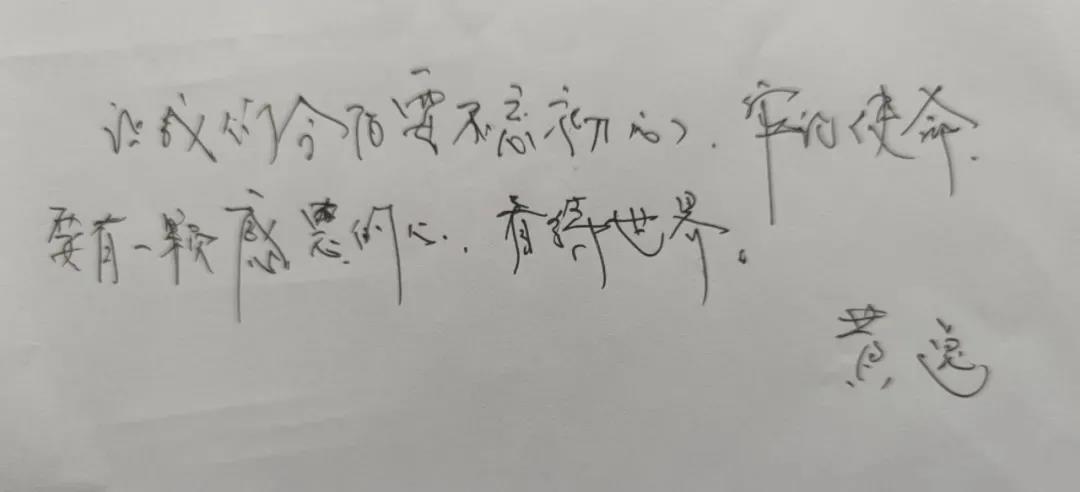 让我们今后要不忘初心,牢记使命.
要有一颗感恩的心.,看待世界。
黄逸